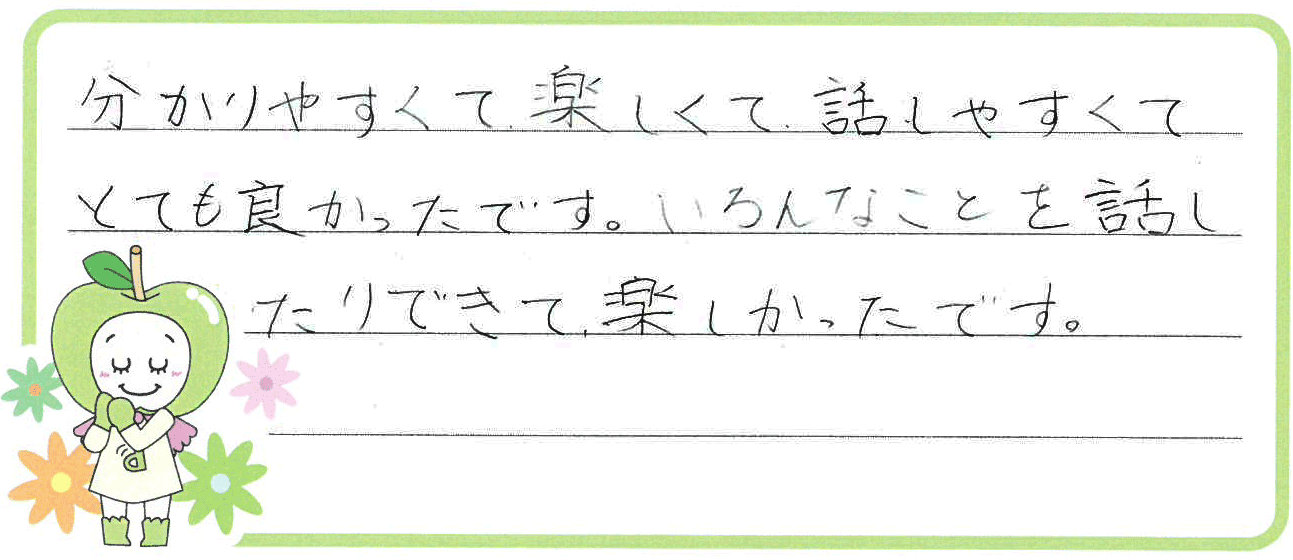 分かりやすくて、楽しくて、話しやすくて
とても良かったです。いろんなことを話し
たりできて、楽しかったです。